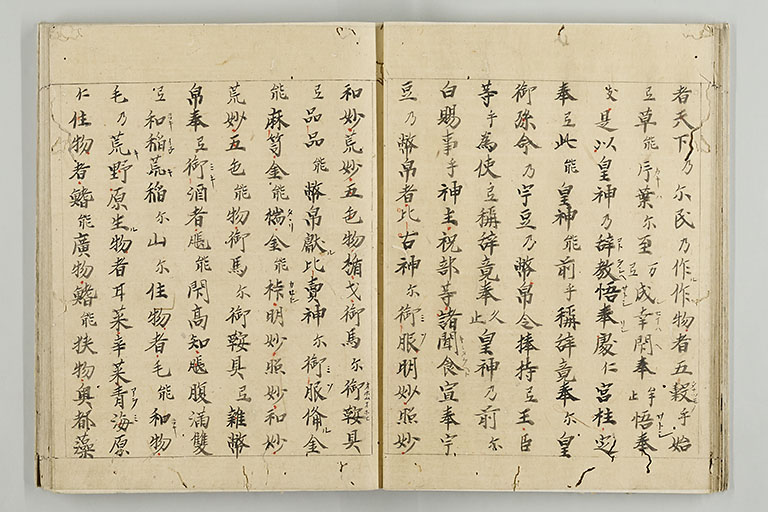 者天下乃尓民乃作作物者五穀乎始
弖草能片葉尓至万弖成幸閇奉牟止悟奉
支是以皇神乃辞教悟奉處仁宮柱定
奉弖此能皇神能前乎稱辞竟奉尓皇
御孫命乃宇豆乃幣帛令捧持弖王臣
等乎為使弖稱辞竟奉久止皇神乃前尓
白賜事乎神主祝部等諸聞食宣奉宇
豆乃幣帛者比古神尓御服明妙照妙
和妙荒妙五色物楯戈御馬尓御鞍具
弖品品能幣帛獻比賣神尓御服俻金
能麻笥金能椯金能桛明妙照妙和妙
荒妙五色能物御馬尓御鞍具弖雜幣
帛奉弖御酒者能閇高知腹満雙
弖和稲荒稲尓山尓住物者毛能和物
毛乃荒野原生物者甘菜辛菜青海原
仁住物者鰭能廣物鰭能狭物奥都藻